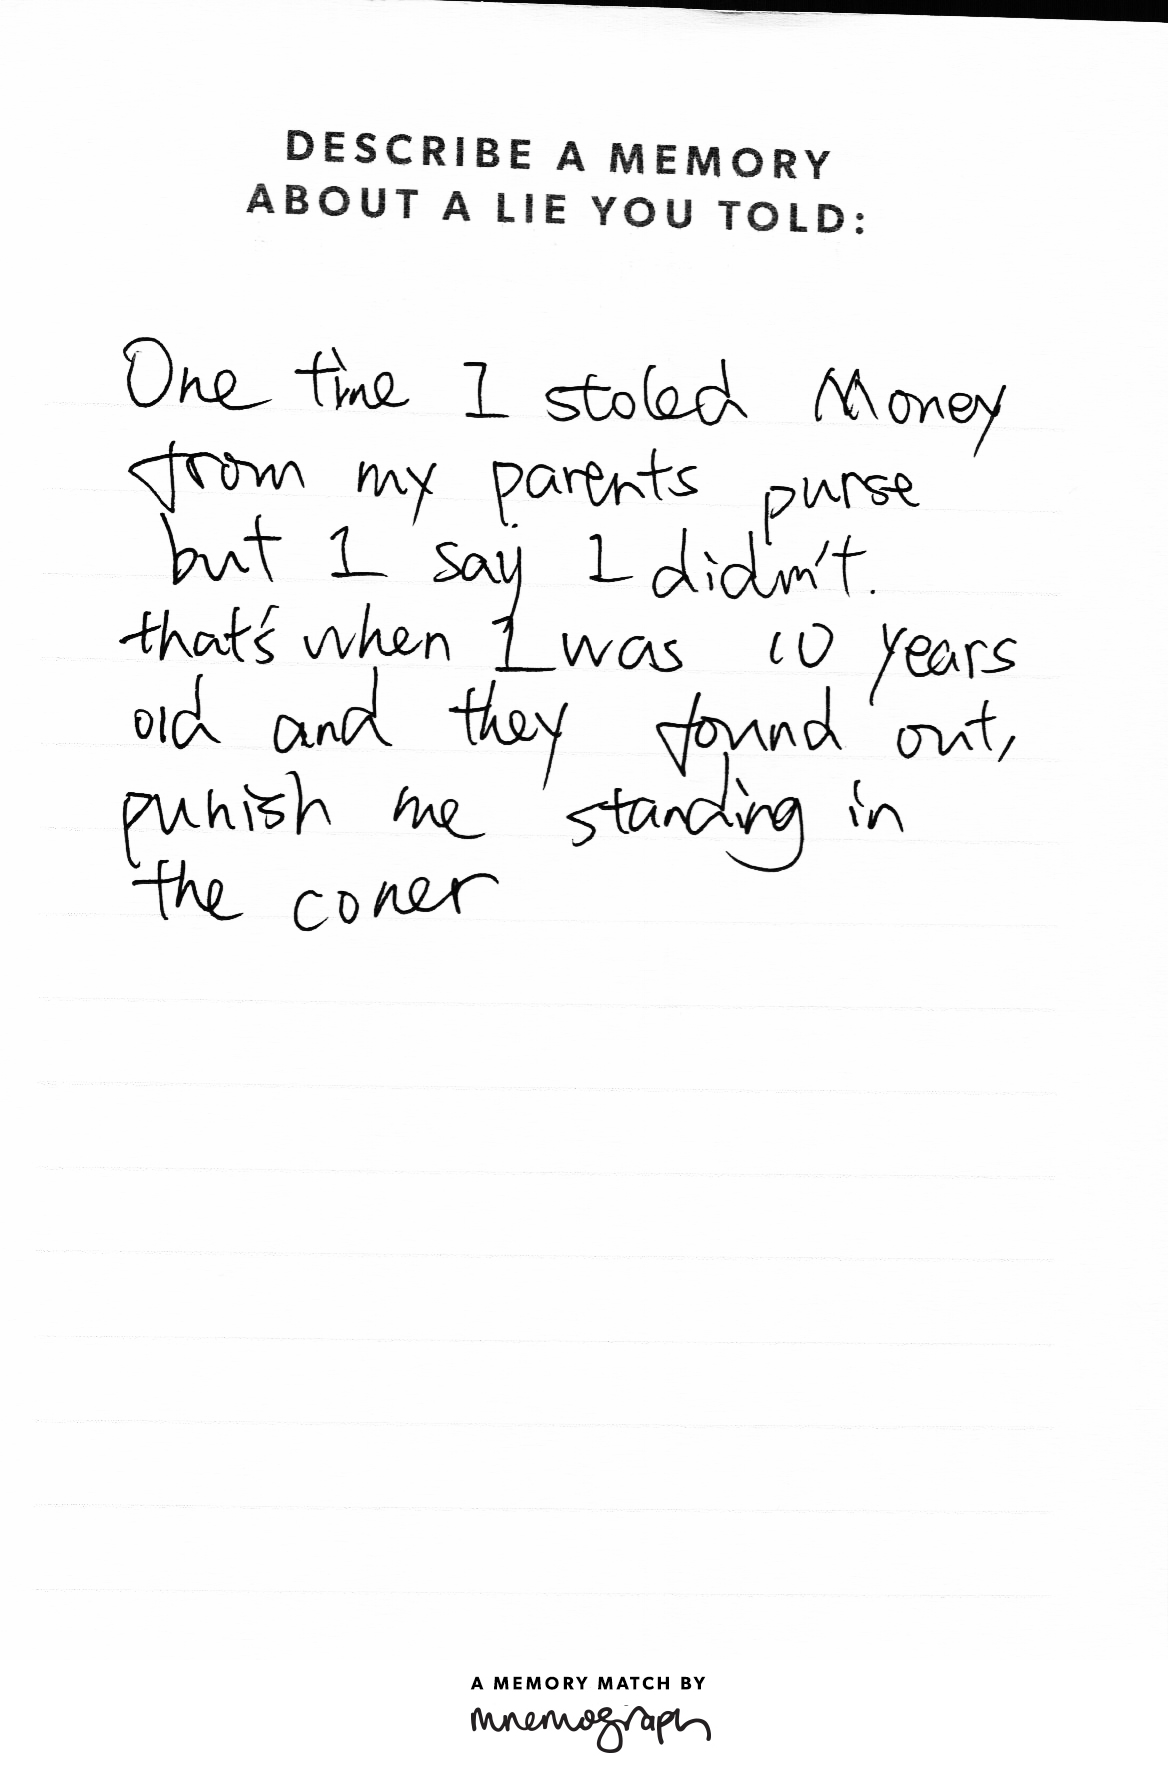 DESCRIBE A MEMORY
ABOUT A LIE YOU TOLD:
One time I stoled Money
from my parents purse
but I say I didn't.
that's when I was 10 years
old and they found out,
punish me standing in
the coner
A MEMORY MATCH BY
mnemograph